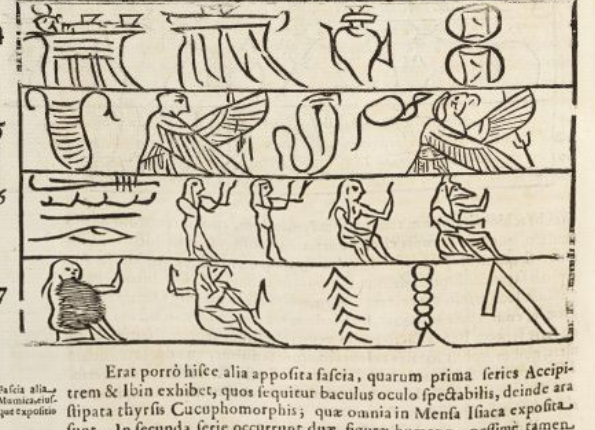 5
6
7
Erat porrò hiſce alia appoſita faſcia, quarum prima ſeries Accipi-
trem & Ibin exhibet, quos ſequitur baculus oculo ſpectabilis, deinde ara
ſtipata thyrſis Cucuphomorphis; quæ omnia in Menſa Iſiaca expoſita
ſunt. In ſecunda ſerie occurrunt duæ figuræ tamen
Faſcia alia
Mumica, eiuſ-
que expoſitio